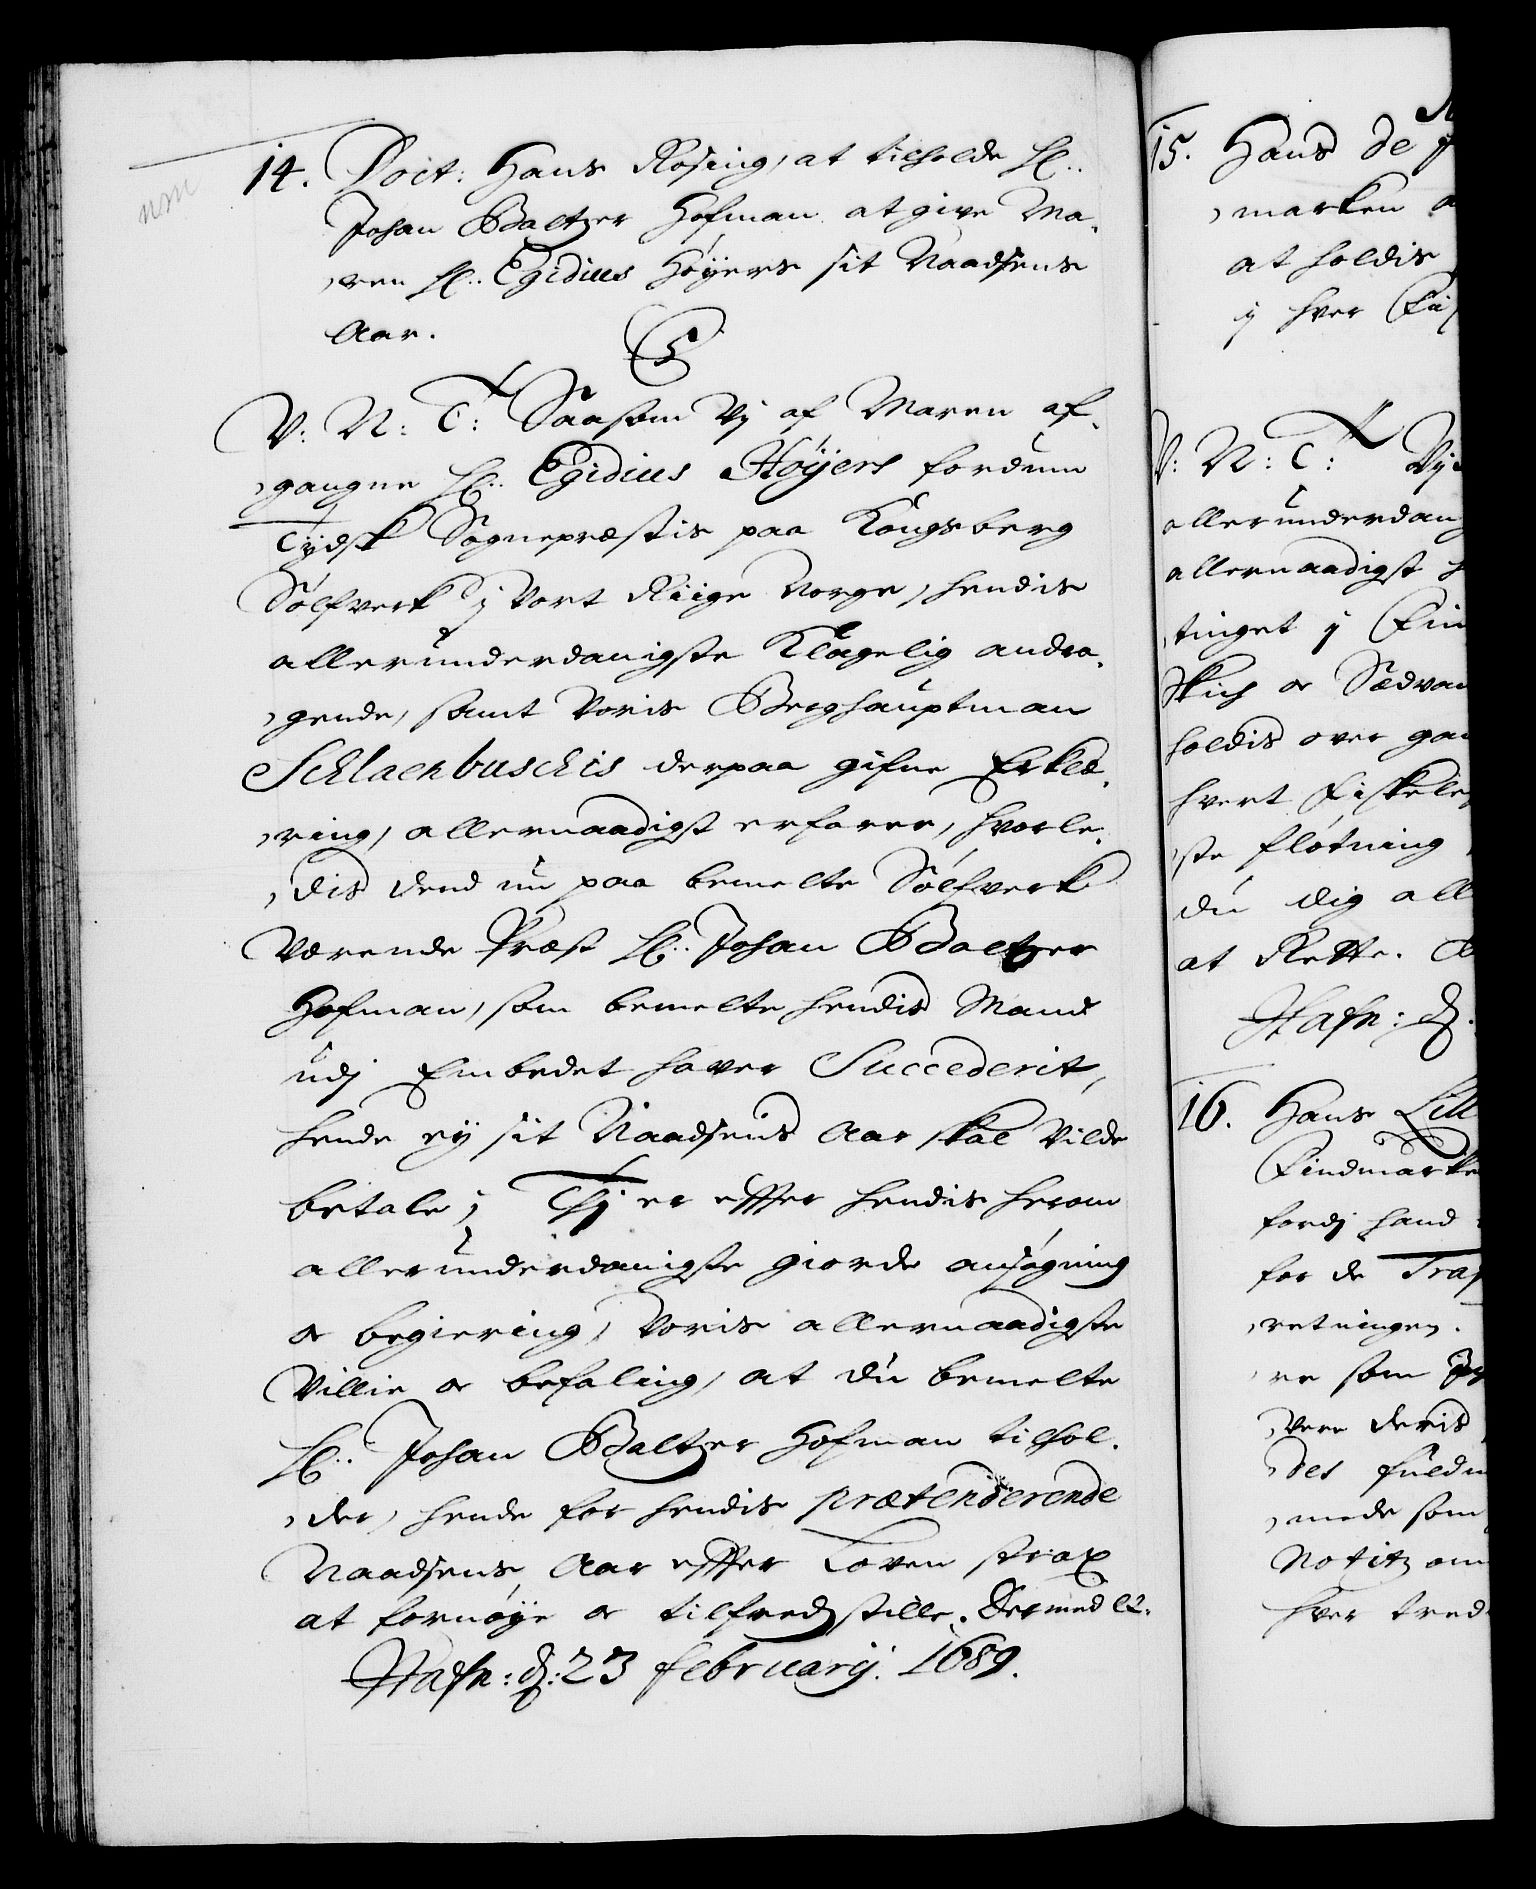 14. Doct: Hans Rosing, at tilholde H:
Johan Baltzer Hofman at give Ma-
ren H: Egidius Höyers sit Naadsens
Aar.
C5
V: N: T: Saasom Vi af Maren af-
gangne H: Egidius Höyers fordum
Tydsk Sognepræstis paa Kongsberg
Sölfverk j Vort Riige Norge, hendis
allerunderdanigste Klagelig andra-
gende, samt Voris Berghauptman
Schlaenbuschis derpaa gifne Erklæ-
ring, allernaadigst erfarer, hvorle-
dis dend nu paa bemelte Sölfverk
Værende Præst H: Johan Baltzer
Hofman, som bemelte hendis Mand
udj Embedet haver Succederit,
hende ey sit Naadsens Aar skal Vilde
betale; Thj er effter hendis herom
allerunderdanigste giorde ansögning
oc begiering, Voris allernaadigste
Villie oc befaling, at du bemelte
H: Johan Baltzer Hofman tilhol-
der, hende for hendis prætenderende
Naadsens Aar effter Loven strax
at fornöye oc tilfredsstille. Dermed etc.
Hafn: d: 23 februarij. 1689.
15. Hans de
marken
at holdis
j hver
V: N: T: Vi
allerunderdan
allernaadigst
tinget j Fin
Skich oc Sædvan
holdis over
hvert Fiskele
ste flötning
du dig all
at Rette.
Hafn: d.
16. Hans Lill
Findmarke
fordj hand
for de
retningen.
re som
Vere deris
det fuldm
mede som
Notitz om
hver tred